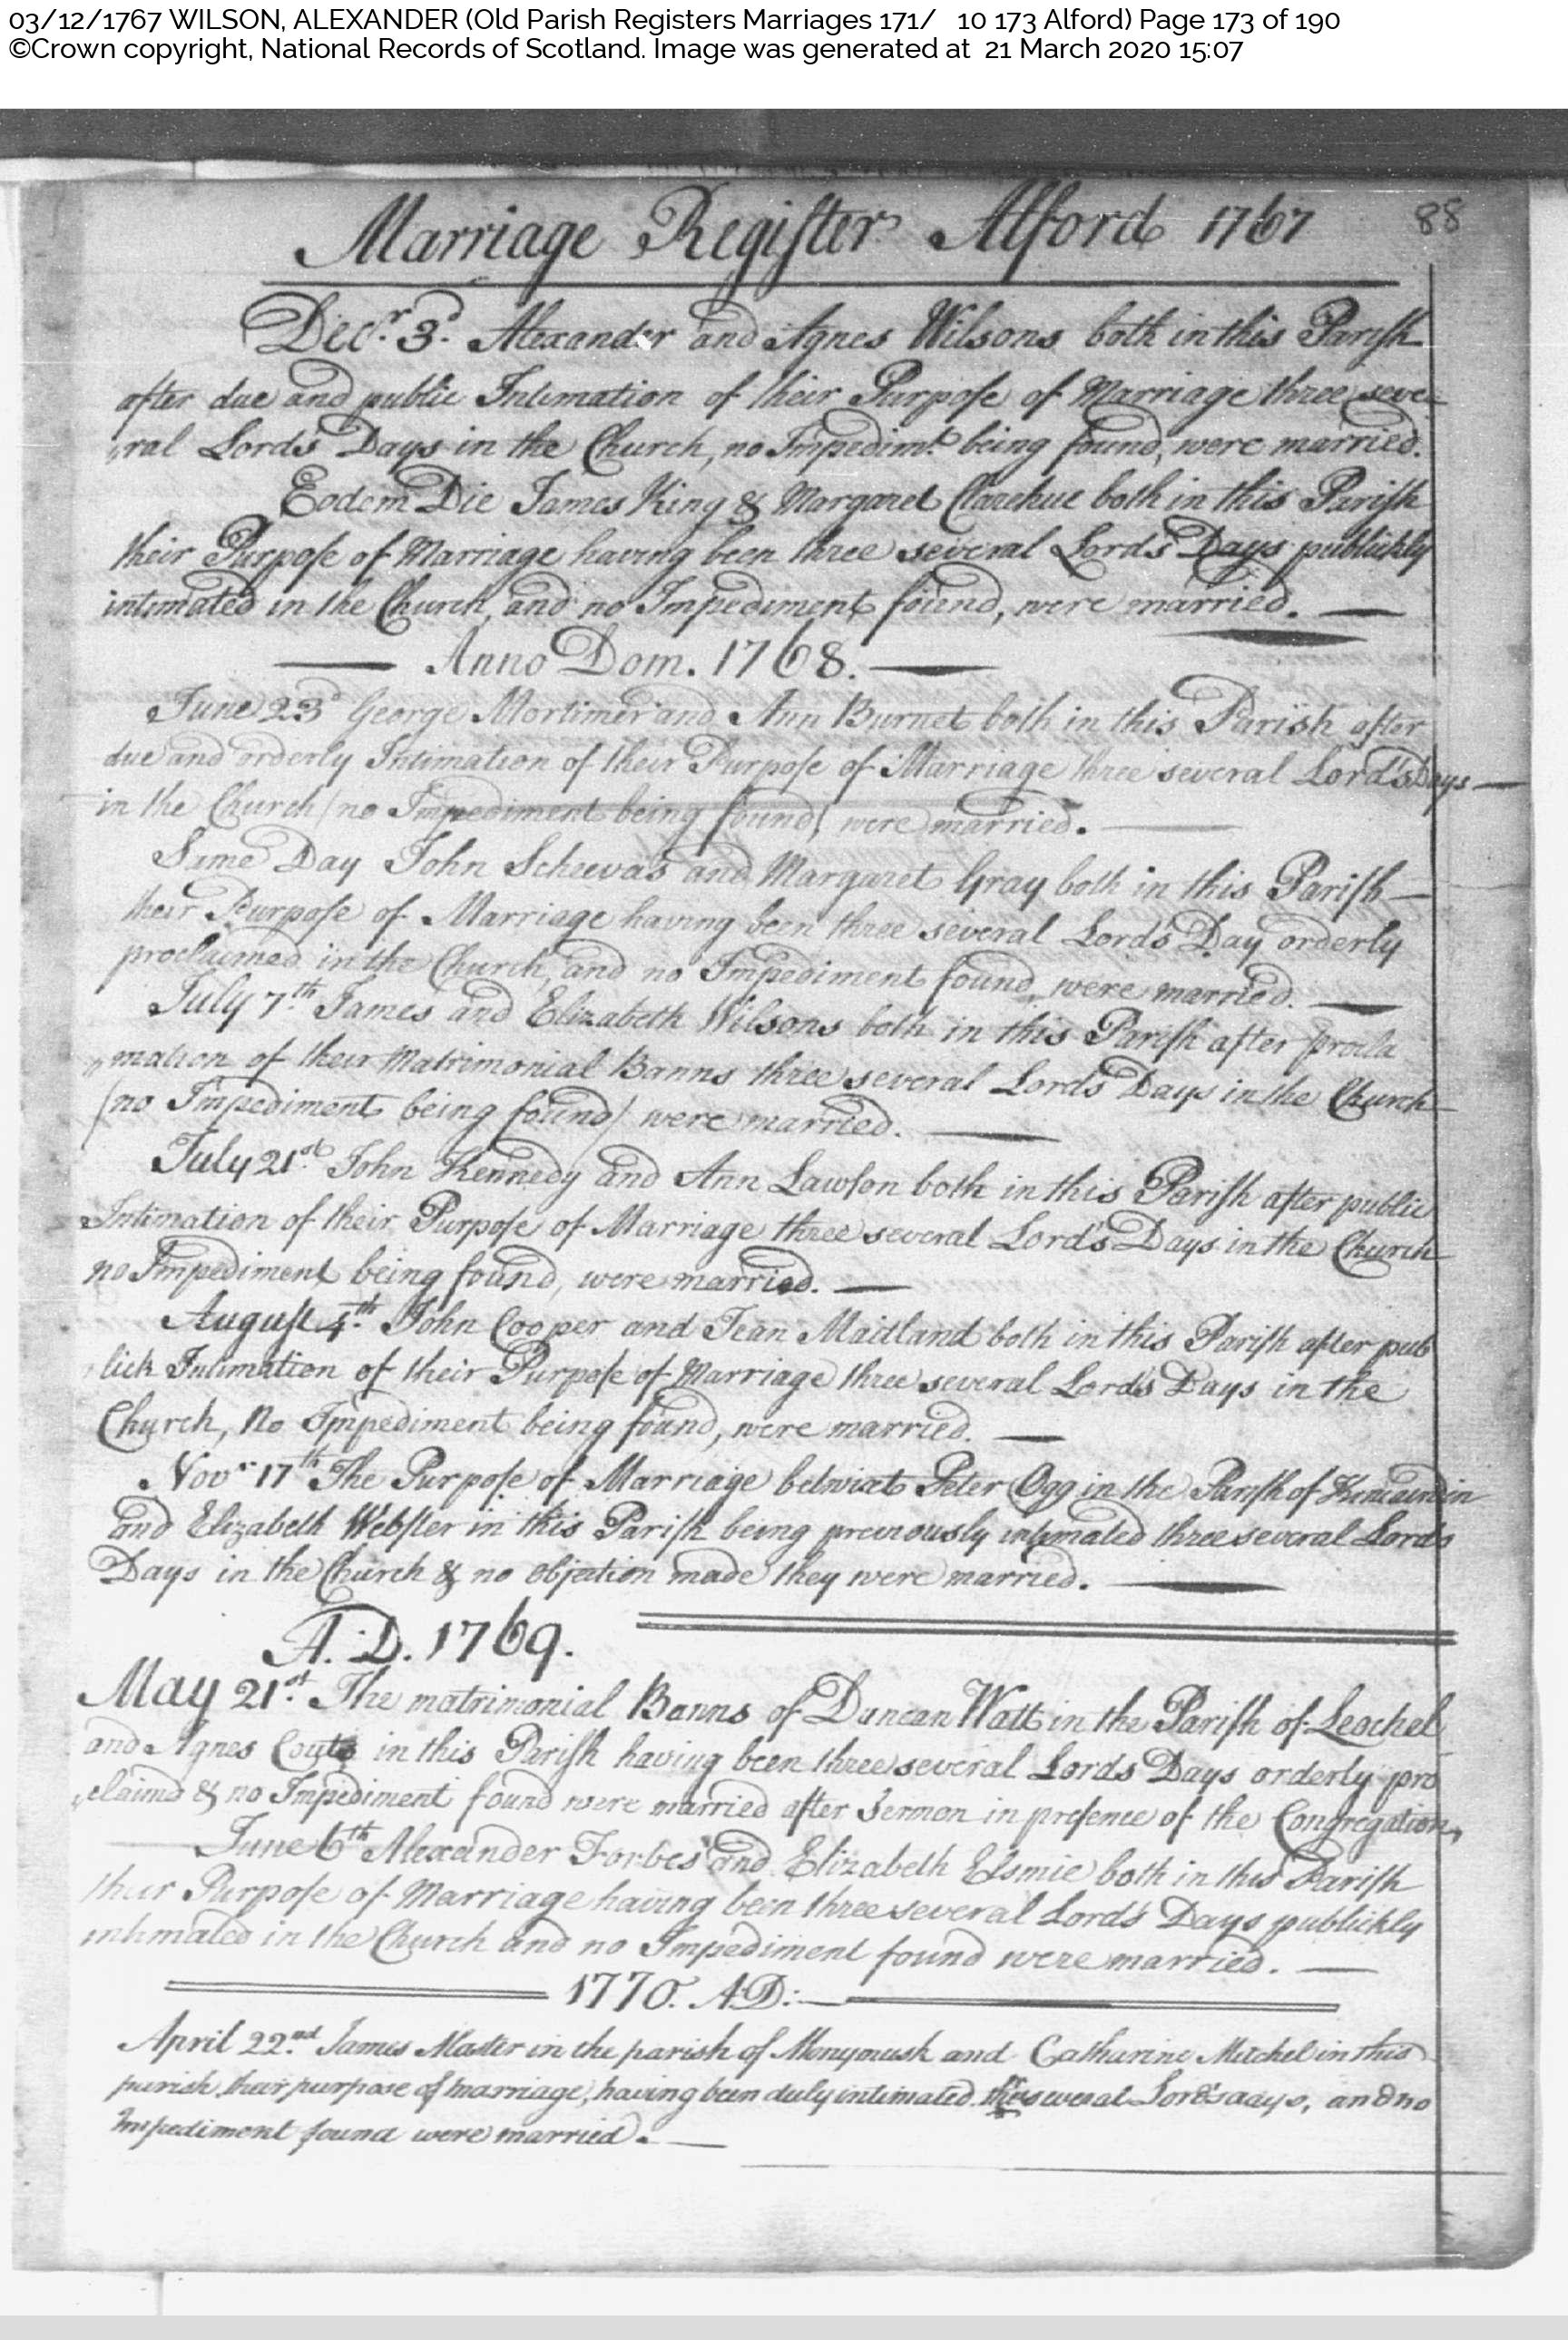 03/12/1767 WILSON, ALEXANDER (Old Parish Registers Marriages 171/ 10 173 Alford) Page 173 of 190
©Crown copyright, National Records of Scotland. Image was generated at 21 March 2020 15:07
Marriage Register Alford 1767 88
Decr. 3d. Alexander and Agnes Wilsons both in this Parish
after due and public Intimation of their Purpose of Marriage three seve-
ral Lords Days in the Church, no Impedimt. being found, were married.
Eodem Die James King & Margaret Clarehue both in this Parish
their Purpose of Marriage having been three several Lords Days publickly
intimated in the Church, and no Impediment found, were married. —
— Anno Dom. 1768. —
June 23d George Mortimer and Ann Burnet both in this Parish after
due and orderly Intimation of their Purpose of Marriage three several Lord's Days —
in the Church (no Impediment being found) were married. —
Same Day John Scheevas and Margaret Gray both in this Parish —
their Purpose of Marriage having been three several Lord's Day orderly
proclaimed in the Church, and no Impediment found were married. —
July 7th. James and Elizabeth Wilsons both in this Parish after procla
mation of their Matrimonial Banns three several Lord's Days in the Church
(no Impediment being found) were married. —
July 21st. John Kennedy and Ann Lawson both in this Parish after public
Intimation of their Purpose of Marriage three several Lord's Days in the Church
no Impediment being found, were married. —
August 4th. John Cooper and Jean Maitland both in this Parish after pub
lick Intimation of their Purpose of Marriage three several Lord's Days in the
Church, No Impediment being found, were married. —
Novr. 17th The Purpose of Marriage betwixt Peter Ogg in the Parish of Kincairdin
and Elizabeth Webster in this Parish being previously intimated three several Lords
Days in the Church & no objection made they were married. —
A.D. 1769.
May 21st. The matrimonial Banns of Duncan Watt in the Parish of Leochel
and Agnes Couts in this Parish having been three several Lords Days orderly pro
claimd & no Impediment found were married after Sermon in presence of the Congregation,
June 6th Alexander Forbes and Elizabeth Elsmie both in this Parish
their Purpose of Marriage having been three several Lord's Days publickly
intimated in the Church and no Impediment found were married. —
1770. A.D: —
April 22nd. James Master in the parish of Monymusk and Catharine Mitchel in this
parish, their purpose of marriage, having been duly intimated several Lord's days, and no
Impediment found were married. —